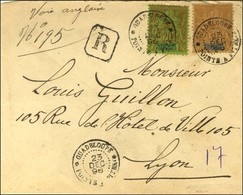 Voie anglaise
N° 195
R
GUADELOUPE
POINTE A PITRE
Monsieur
Louis Guillon
105 Rue de Hotel de Ville 105
Lyon
17
GUADELOUPE
23
DEC
98
POINTE A PITRE